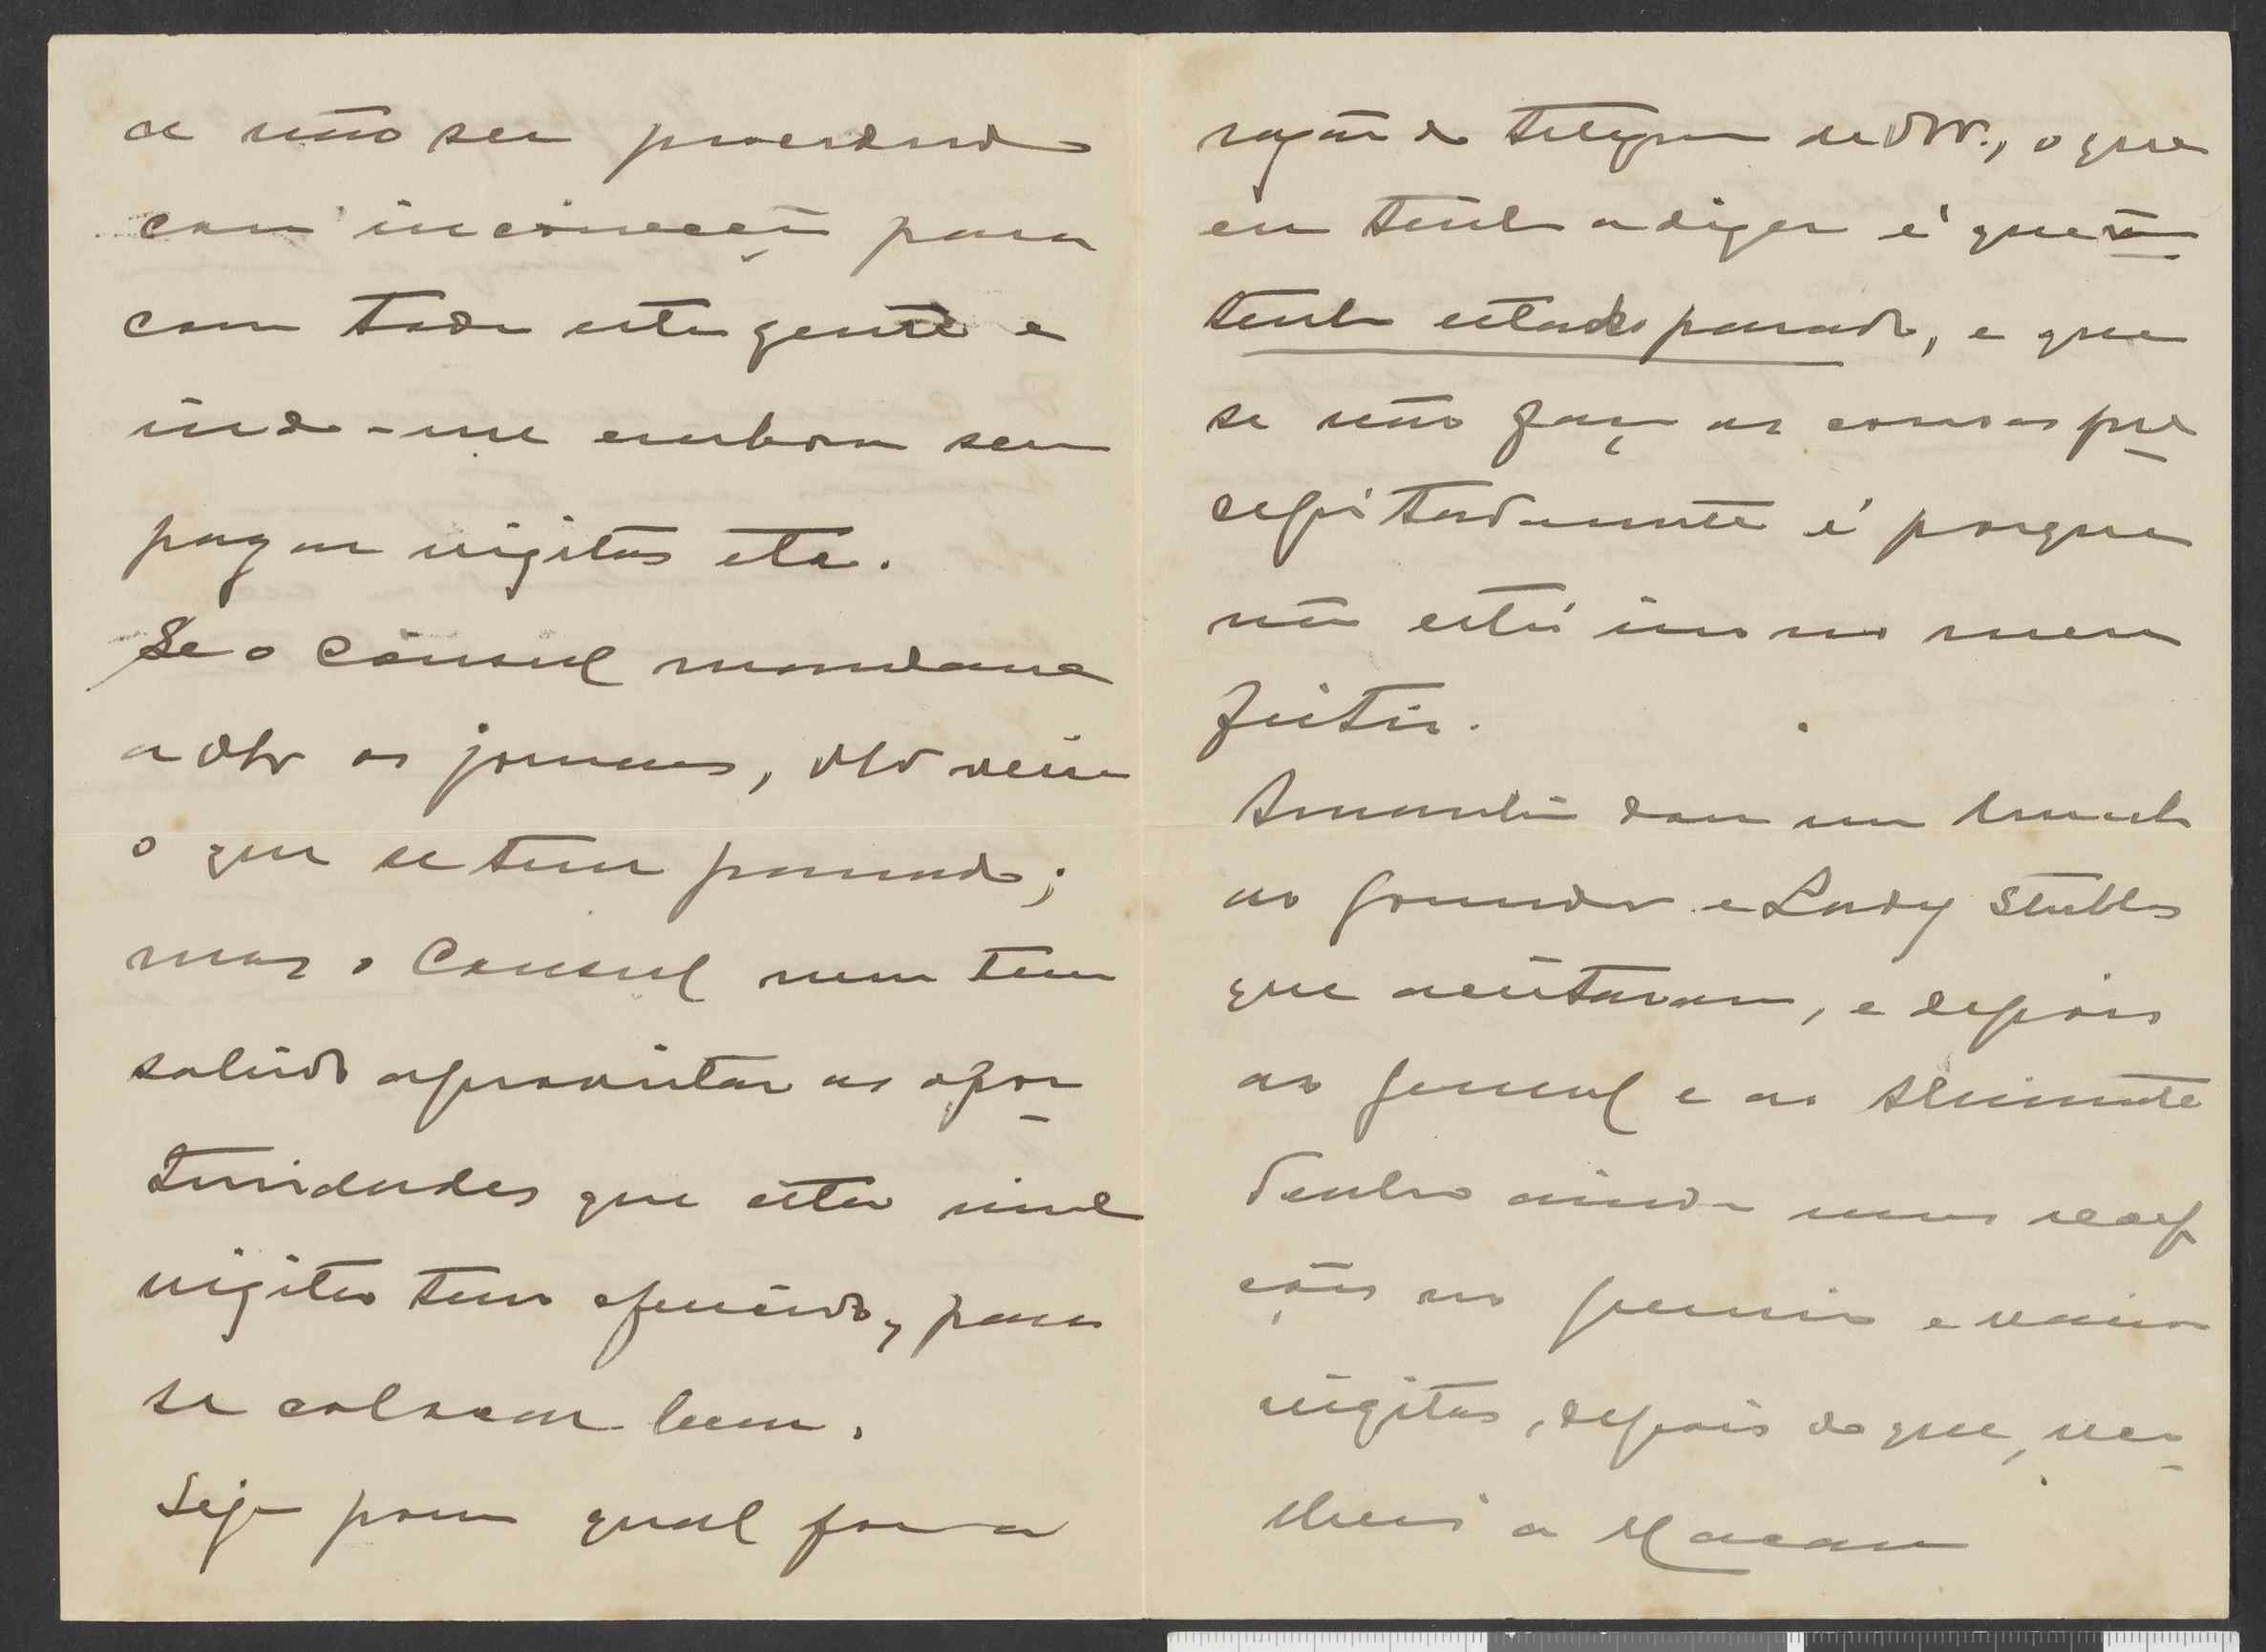 a não ser procedendo
com incorreção para
com toda esta gente e
indo-me embora sem
pagar vizitas etc.
Se o Consul mandasse
a V os jornaes, V veria
o que se tem passado;
mas o Consul nem tem
sabido aproveitar as opor
tunidades que esta minha
vizita tem oferecido, para
se colocar bem.
Seja porem qual for a
razão do telegrama de V., o que
eu tenho a dizer é que não
tenho estado parado, e que
se não faço as cousas pre
cipitadamente é porque
não está isso no meu
feitio.
Amanhã dou um lunch
ao Governador e Lady Stubbs
que aceitaram, e depois
ao general e ao Almirante
Tenho ainda umas recep
ções no Gremio e varias
vizitas, depois do que, re
colherei a Macau